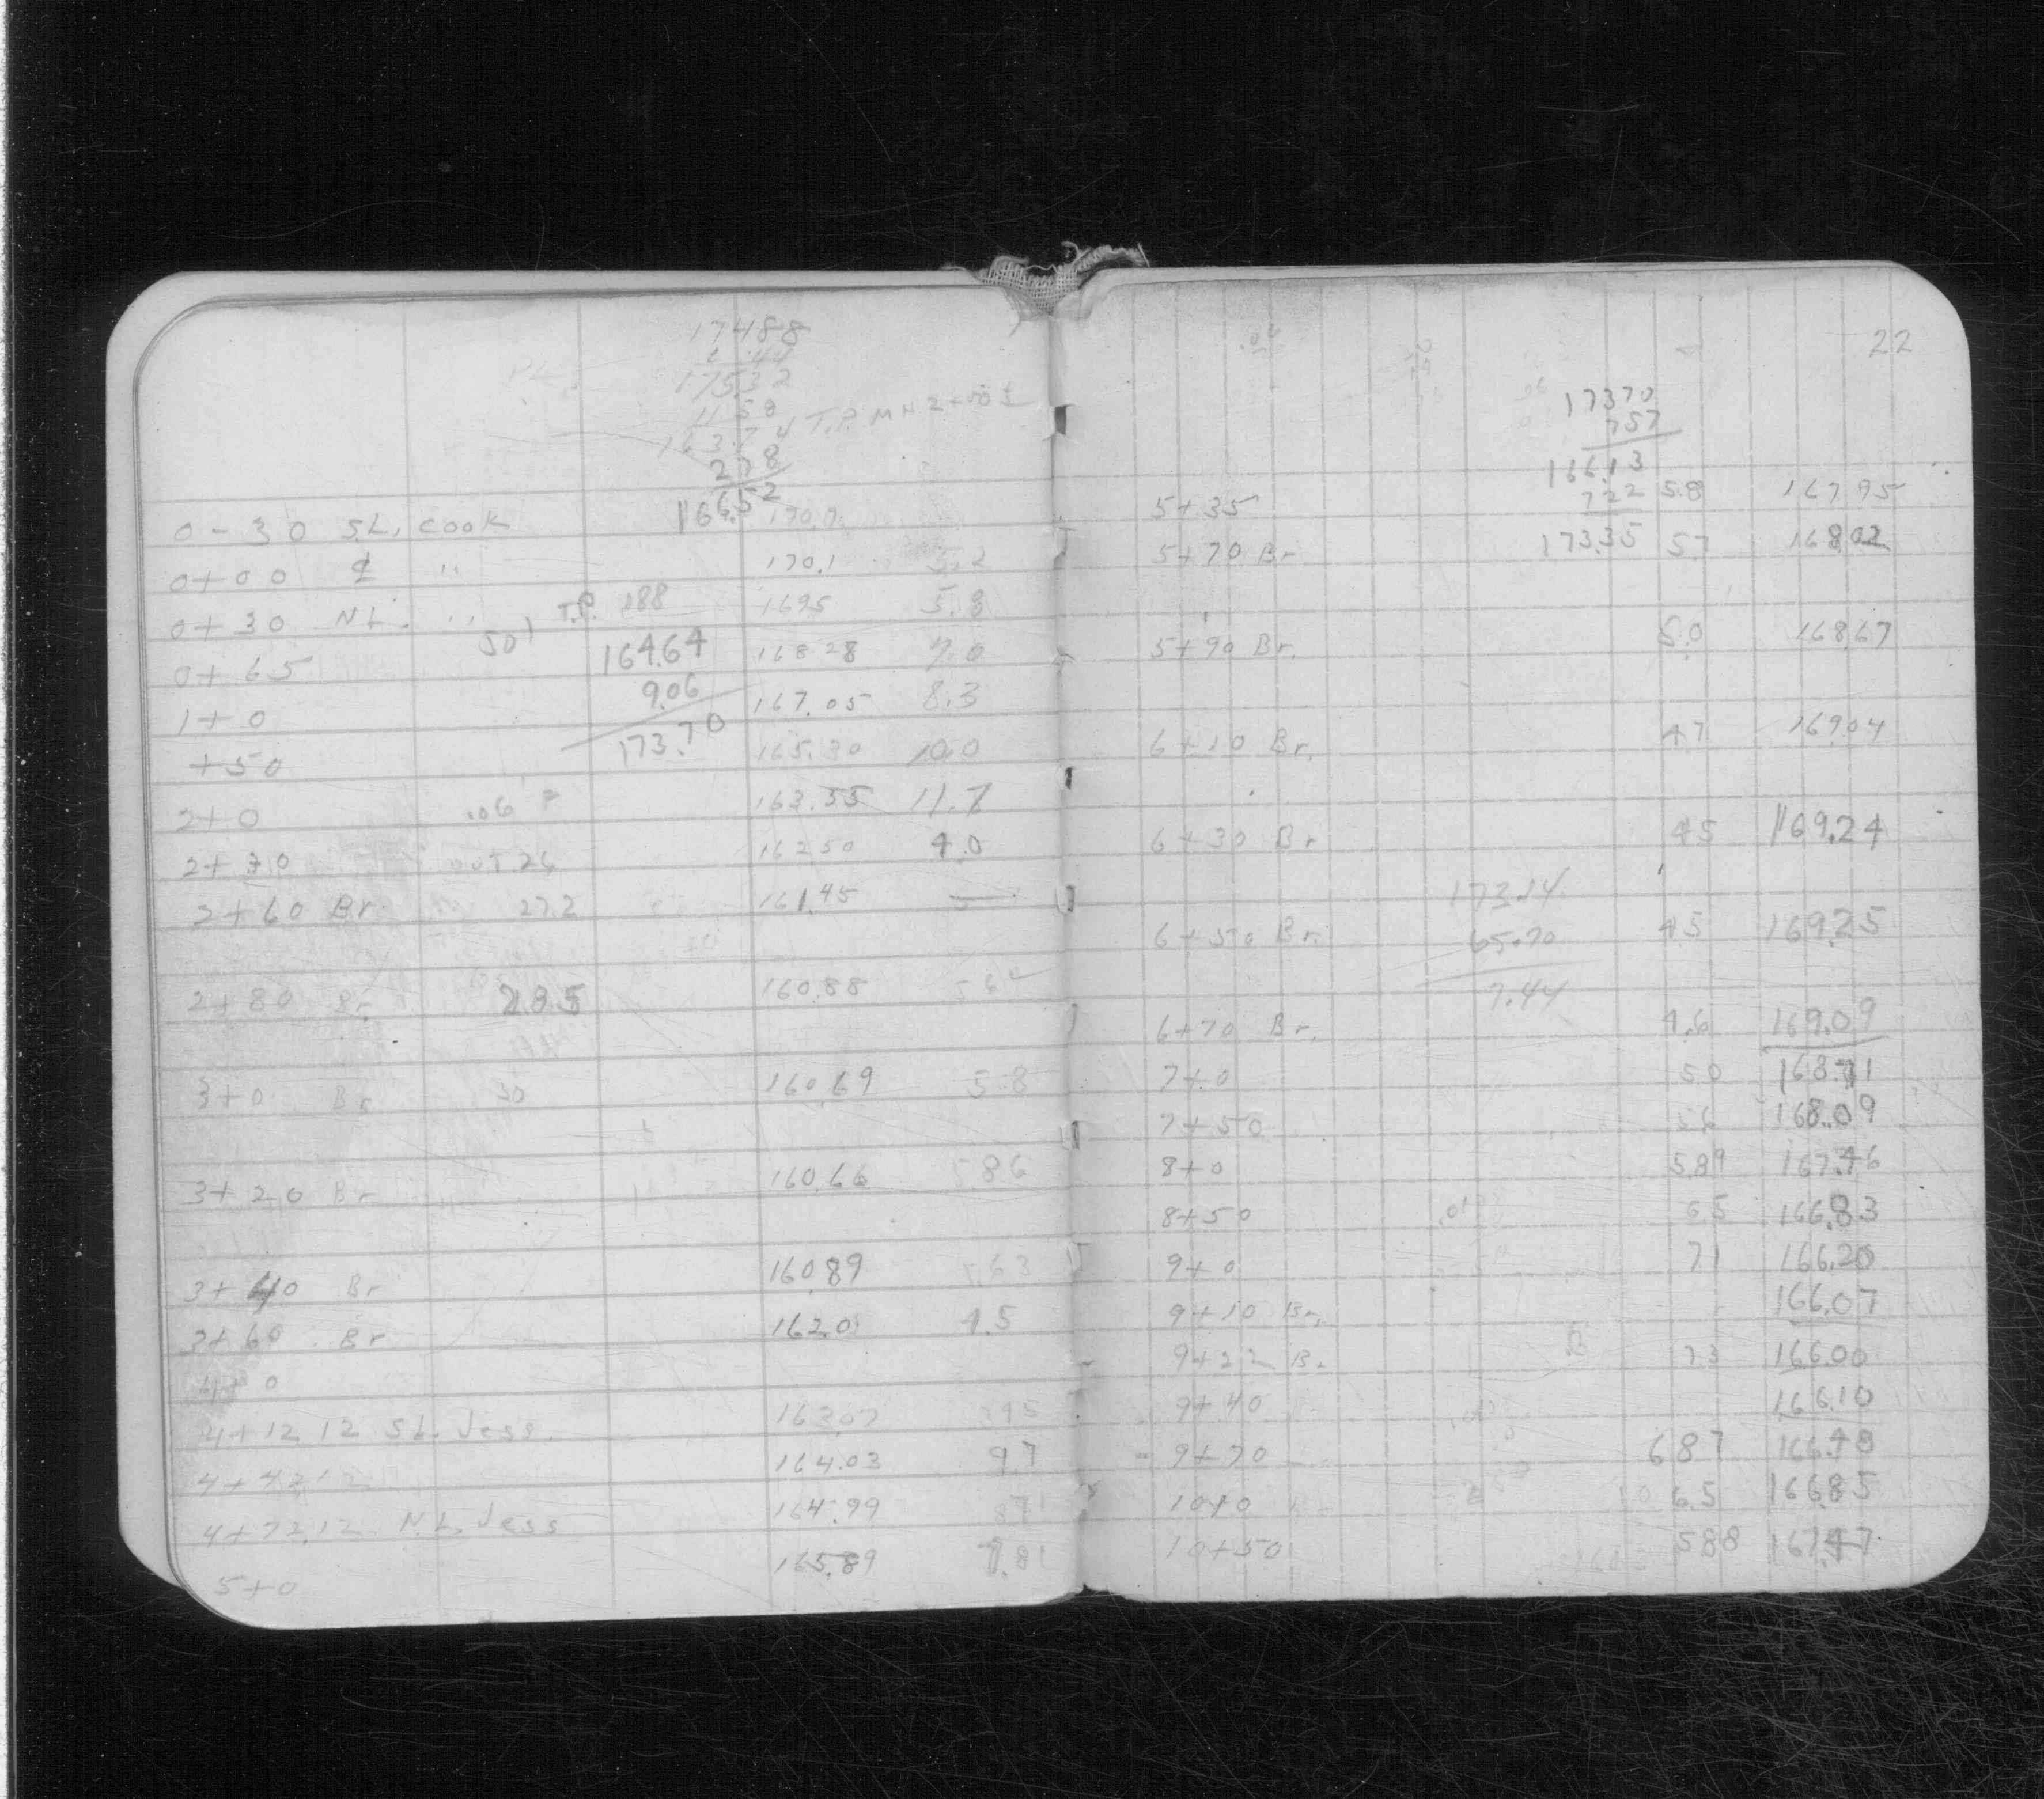 17488
.44
175.32
11 58
163.74 T.P. M H 2+00
2 78
166.52
0-30 SL. cook 170.7
0+00 ₵ " 170.1 5.2
0+30 NL. " T.P. 188 1695 5.8
0+65 50 164.64 168 28 7.0
1+0 9.06 167.05 8.3
+50 173.70 165.30 10.0
2+0 .06 163.55 11.7
2+30 26 162 50 4.0
2+60 Br. 27.2 161.45
2+80 Br. 28.5 160.88
3+0 Br 30 160.69 5.8
3+20 Br 160.66 5 86
3+40 Br 160.89 5.63
3+60 Br 162.0 4.5
4+0
4+12.12 SL. Jess. 163.07
4+42 12 164.03 9.7
4+72.12 N.L. Jess 164.99 871
5+0 165.89 7.81
22
173 70
757
166.13
5+35 722 5.8 167 95
5+70 Br 173.35 57 168.02
5+90 Br. 5.0 168.67
6+10 Br. 47 169.04
6+30 Br 45 169.24
173.14
6+50 Br. 65.70 45 169.25
7.44
6+70 Br. 4.6 169.09
7+0 50 168.71
7+50 56 168.09
8+0 5.89 167.46
8+50 .01 6.5 166.83
9+0 71 166.20
9+10 Br. 166.07
9+22 Br 73 166.00
9+40 166.10
9+70 687 166.48
10+0 6.5 166.85
10+50 588 167.47